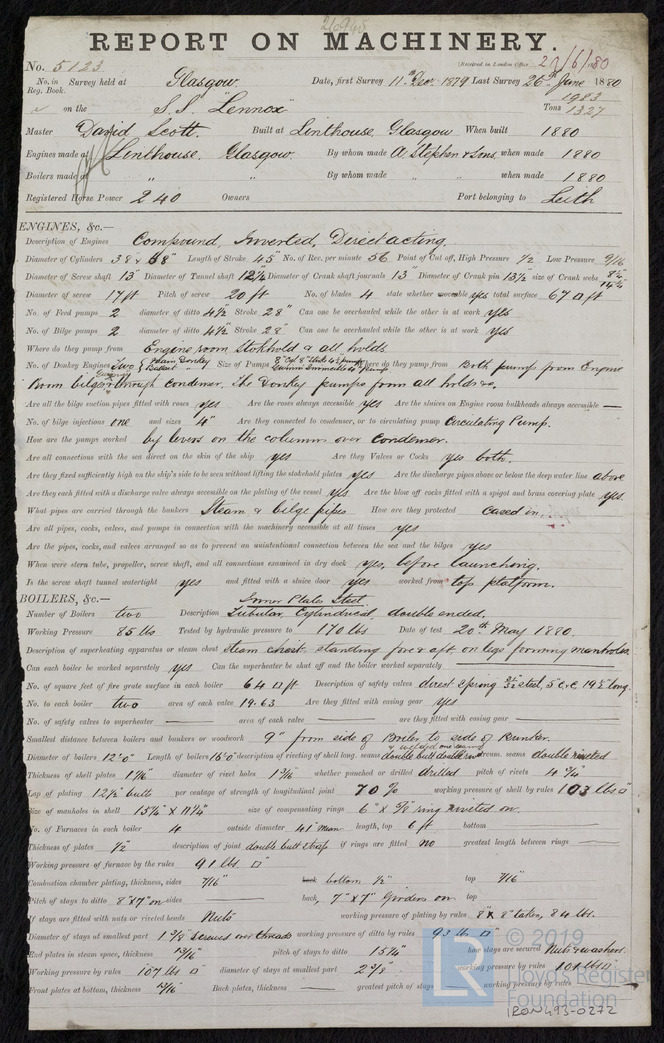 REPORT ON MACHINERY.
No. 5123
(Received in London Office 29/6/80
No. in Survey held at Glasgow. Date, first Survey 11th Decr 1879 Last Survey 26th June 1880
Reg. Book. 1983
on the S.S. "Lennox" Tons 1327
Master David Scott. Built at Linthouse, Glasgow When built 1880
Engines made at Linthouse, Glasgow. By whom made A. Stephen & Sons, when made 1880
Boilers made at " " By whom made " " when made 1880
Registered Horse Power 240 Owners Port belonging to Leith
ENGINES, &c.—
Description of Engines Compound, Inverted, Direct acting.
Diameter of Cylinders 38 & 68" Length of Stroke 45 No. of Rev. per minute 56 Point of Cut off, High Pressure 1/2 Low Pressure 9/16
Diameter of Screw shaft 13" Diameter of Tunnel shaft 12 1/4 Diameter of Crank shaft journals 13" Diameter of Crank pin 13 1/2 size of Crank webs
Diameter of screw 17 ft Pitch of screw 20 ft No. of blades 4 state whether moveable yes total surface 67 □ ft
No. of Feed pumps 2 diameter of ditto 4 1/2 Stroke 28" Can one be overhauled while the other is at work yes
No. of Bilge pumps 2 diameter of ditto 4 1/2 Stroke 28" Can one be overhauled while the other is at work yes
Where do they pump from Engine room, Stokhold & all holds.
No. of Donkey Engines Two { Main Donkey Ballast " Size of Pumps Where do they pump from Both pump from Engine
Room bilge & through Condenser, the Donkey pumps from all holds &c.
Are all the bilge suction pipes fitted with roses yes Are the roses always accessible yes Are the sluices on Engine room bulkheads always accessible —
No. of bilge injections one and sizes 4" Are they connected to condenser, or to circulating pump Circulating Pump.
How are the pumps worked by levers on the columns over condenser.
Are all connections with the sea direct on the skin of the ship yes Are they Valves or Cocks yes both.
Are they fixed sufficiently high on the ship's side to be seen without lifting the stokehold plates yes Are the discharge pipes above or below the deep water line above
Are they each fitted with a discharge valve always accessible on the plating of the vessel yes Are the blow off cocks fitted with a spigot and brass covering plate yes.
What pipes are carried through the bunkers Steam & bilge pipes How are they protected cased in.
Are all pipes, cocks, valves, and pumps in connection with the machinery accessible at all times yes
Are the pipes, cocks, and valves arranged so as to prevent an unintentional connection between the sea and the bilges yes
When were stern tube, propeller, screw shaft, and all connections examined in dry dock yes, before launching.
Is the screw shaft tunnel watertight yes and fitted with a sluice door yes worked from top platform.
BOILERS, &c.—
Inner Plates Steel
Number of Boilers two Description Tubular, Cylindrical, double ended.
Working Pressure 85 lbs Tested by hydraulic pressure to 170 lbs Date of test 20th May 1880.
Description of superheating apparatus or steam chest steam chest, standing fore & aft on legs forming manholes.
Can each boiler be worked separately yes Can the superheater be shut off and the boiler worked separately ———
No. of square feet of fire grate surface in each boiler 64 □ ft Description of safety valves direct spring
No. to each boiler two area of each valve 19.63 Are they fitted with easing gear yes
No. of safety valves to superheater —— area of each valve —— are they fitted with easing gear ——
Smallest distance between boilers and bunkers or woodwork 9" from side of Boiler to side of Bunker.
Diameter of boilers 12'0" Length of boilers 16'0" description of riveting of shell long. seams double butt double riv circum. seams double riveted
Thickness of shell plates 1 1/16 diameter of rivet holes 1 3/16 whether punched or drilled drilled pitch of rivets 4 3/4
Lap of plating 12 1/2 butt per centage of strength of longitudinal joint 70 % working pressure of shell by rules 103 lbs □"
Size of manholes in shell 15 3/4 X 11 3/4 size of compensating rings 6" X 5/8 ring riveted on.
No. of Furnaces in each boiler 4 outside diameter 41" Mean length, top 6 ft bottom
Thickness of plates 1/2" description of joint double butt strap if rings are fitted no greatest length between rings ——
Working pressure of furnace by the rules 91 lbs □"
Combustion chamber plating, thickness, sides 7/16" back bottom 1/2" top 7/16
Pitch of stays to ditto 8"X7" on sides —— back, 7"X7" Girders on top
If stays are fitted with nuts or riveted heads Nuts working pressure of plating by rules 8"X8" taken, 84 lbs.
Diameter of stays at smallest part 1 3/8 screwed over threads working pressure of ditto by rules 93 lbs □"
End plates in steam space, thickness pitch of stays to ditto 15 1/4" how stays are secured Nuts & washers.
Working pressure by rules 107 lbs □" diameter of stays at smallest part 2 3/8" working pressure by rules 101 lbs □"
Front plates at bottom, thickness Back plates, thickness —— greatest pitch of stays —— working pressure by rules ——
© 2019
LR
Lloyd's Register
Foundation
IRON493-0272